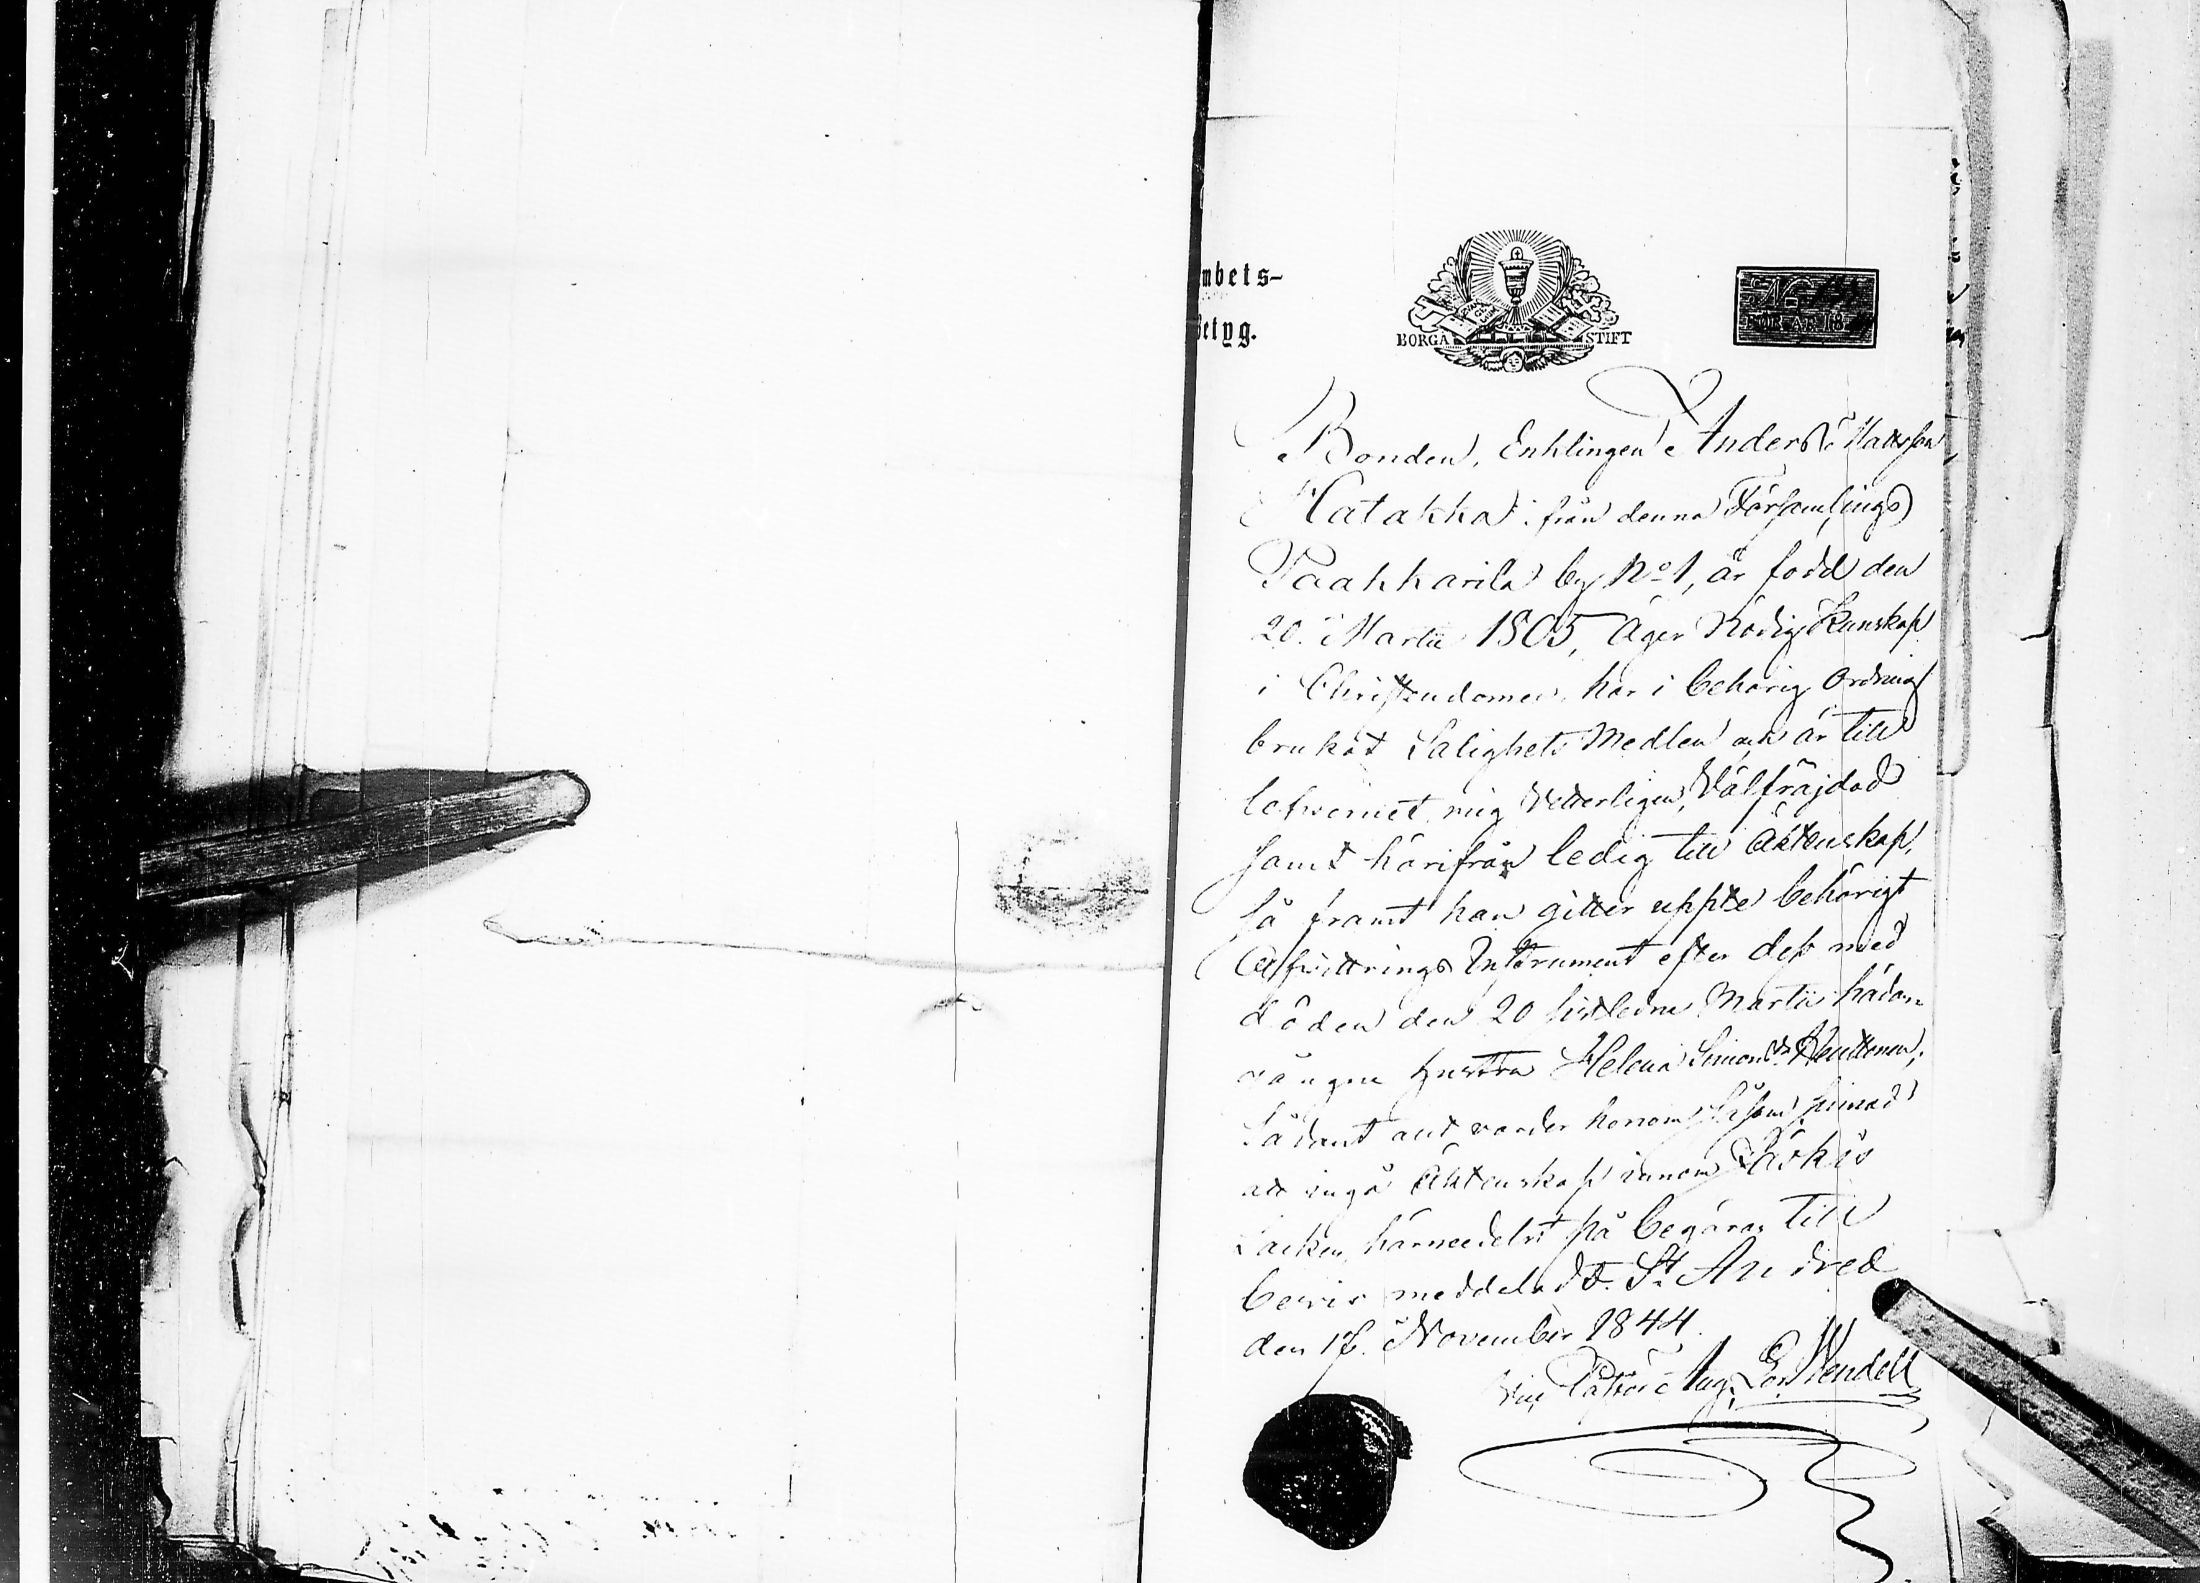 mbets-
Betyg.
BORGÅ STIFT
FÖR ÅR 18
Bonden, Enklingen Anders Mattsson
Hatakka ifrån denna Församlings
Paakkarila by No 1, är född den
20. Martii 1805, äger Nödig Kunskap
i Christendomen, har i behörig Ordning
brukat Salighets Medlen och är till
lefvernet, mig Vetterligen, Välfräjdad
samt härifrån ledig till Äktenskap,
så framt han gitter uppte behörigt
Afvittrings Instrument efter dess med
döden den 20 sistledne Martii hädan
gångne hustru Helena Simonsdr
Sådant att varder honom såsom sinnad
att ingå Äktenskap innom Jäskis
Socken, härmedelst på begäran till
bevis meddeladt. St Andreæ
den 16. November 1844.
Vice Pastor Aug. Wendell